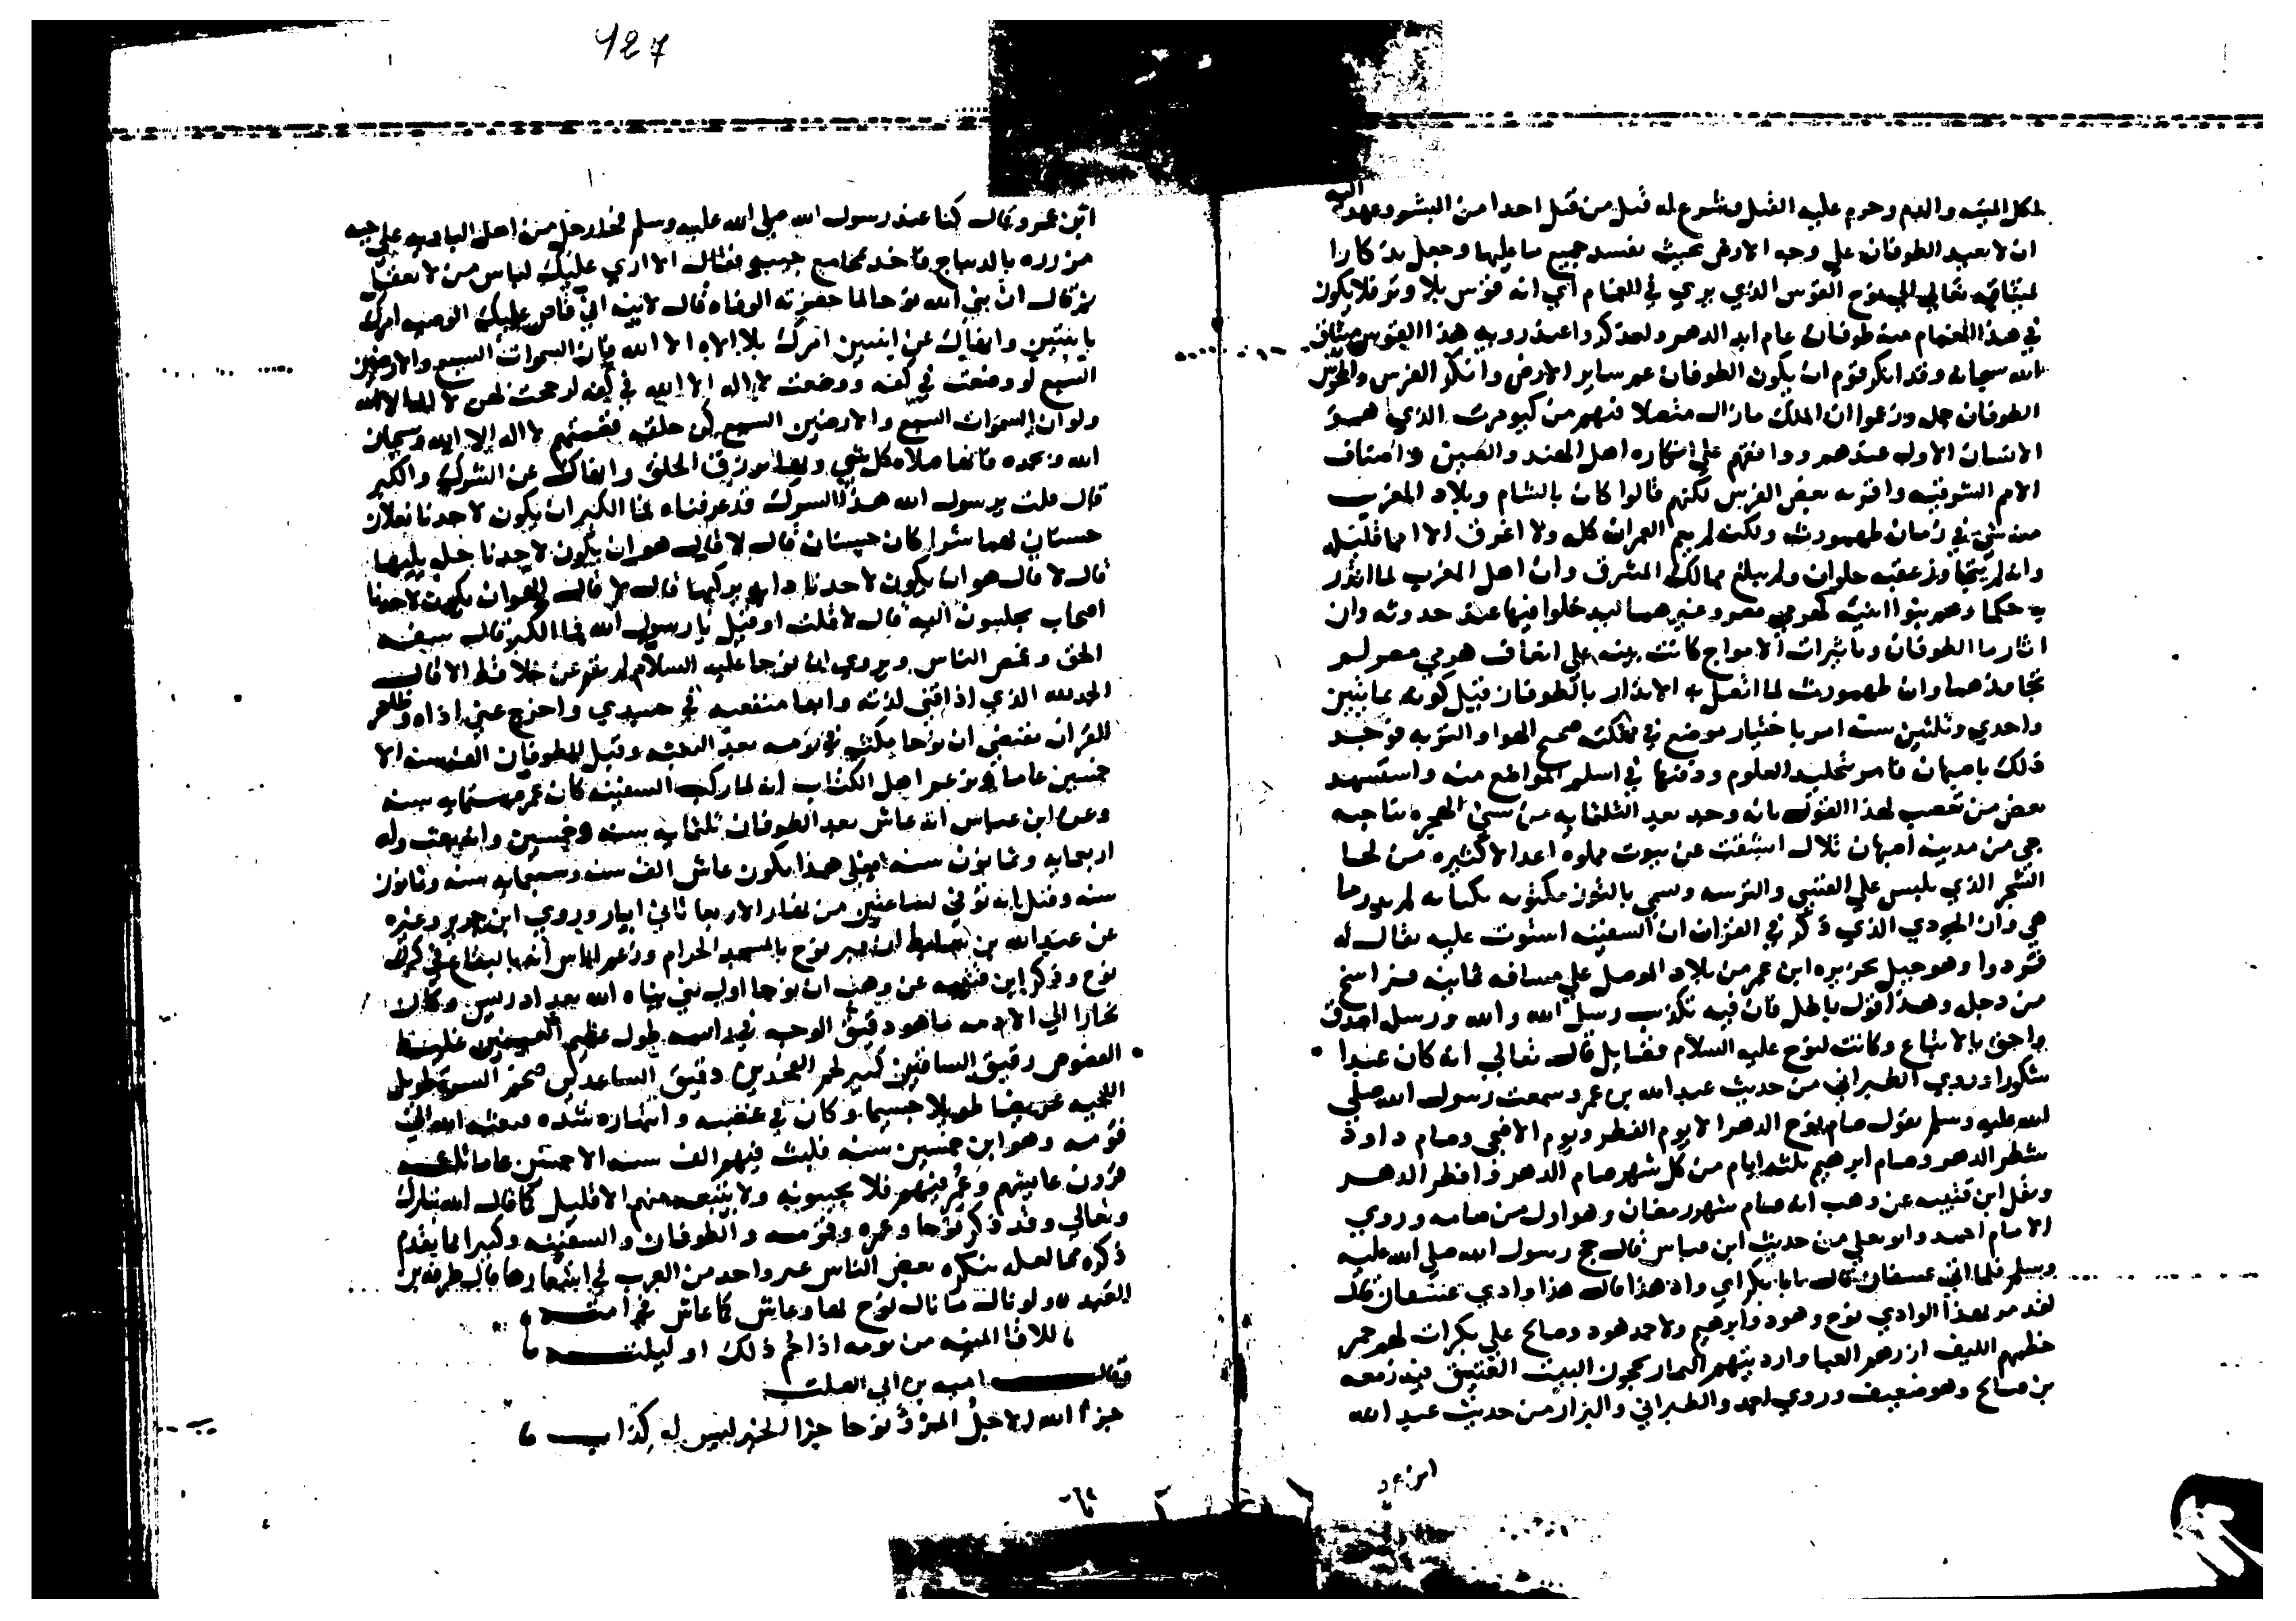 لاكل الميتة والدم وحرم عليه القتل وشرع له قتل من قتل احدا من البشر وعهد اليه
ان لا يعيد الطوفان علي وجه الارض بحيث يفسد جميع ما عليها وجعل تذكارا
لميثاقه تعالي الي نوح القوس الذي يري في الغمام اي انه قوس بلا وتر فلا يكون
في هذا الغمام منه طوفان عام ابد الدهر وليذكروا عند رويه هذا القوس ميثاق
الله سبحانه وقد انكر قوم ان يكون الطوفان عم ساير الارض وانكر الفرس والمجوس
الطوفان جمله وزعموا ان الملك مازال متصلا فيهم من كيومرت الذي هو
الانسان الاول عندهم ووافقهم علي انكاره اهل الهند والصين واصناف
الامم الشرقيه واقر به بعض الفرس لكنهم قالوا كان بالشام وبلاد المغرب
منه شي في زمان طهمورت ولكنه لم يعم العمران كله ولا اغرق الا امما قليله
وانه لم يتجاوز عقبه حلوان ولم يبلغ ممالك المشرق وان اهل المغرب لما انذر
به حكماوهم بنوا ابنيه كهرمي مصر وغيرهما ليدخلوا فيها عند حدوثه وان
اثار ما الطوفان وتاثيرات الامواج كانت بينه علي انصاف هرمي مصر لم
تتجاوزهما وان طهمورت لما اتصل به الانذار بالطوفان قبل كونه بمايتين
واحدي وثلثين سنه امر باختيار موضع في مملكته صحيح الهوا والتربه فوجد
ذلك باصبهان فامر بتجليد العلوم ودفنها في اسلم المواضع منه واستشهد
بعض من تعصب لهذا القول بانه وجد بعد الثلثمايه من سني الهجره بناحيه
جي من مدينه اصبهان تلال انشقت عن بيوت مملوه اعدالا كثيره من لحا
الشجر الذي يلبس علي القسي والترسه وسمي بالتوز مكتوبه بكتابه لم يدر ما
هي وان الجودي الذي ذكر في القران ان السفينه استوت عليه يقال له
قردوا وهو جبل بجزيره ابن عمر من بلاد الموصل علي مسافه ثمانيه فراسخ
من دجله وهذا قول باطل فان فيه تكذيب رسل الله والله ورسله اصدق
واحق بالاتباع وكانت لنوح عليه السلام فضايل قال تعالي انه كان عبدا
شكورا وروي الطبراني من حديث عبد الله بن عمرو سمعت رسول الله صلي
الله عليه وسلم يقول صام نوح الدهر الا يوم الفطر ويوم الاضحي وصام داود
شطر الدهر وصام ابرهيم ثلثه ايام من كل شهر صام الدهر وافطر الدهر
ونقل ابن قتيبه عن وهب انه صام شهر رمضان وهو اول من صامه وروي
الامام احمد وابو يعلي من حديث ابن عباس قال حج رسول الله صلي الله عليه
وسلم فلما اتي عسفان قال يابا بكر اي واد هذا قال هذا وادي عسفان قال
لقد مر بهذا الوادي نوح وهود وابرهيم ولاحمد هود وصالح علي بكرات لهم حمر
خطمهم الليف ازرهم العبا وارديتهم النمار يحجون البيت العتيق فيه زمعه
بن صالح وهو ضعيف وروي احمد والطبراني والبزار من حديث عبد الله
ابن عمرو
427
ابن عمرو قال كنا عند رسول الله صلي الله عليه وسلم فجا رجل من اهل الباديه علي جبه
مزرره بالديباج فاخذ بمجامع جيبه فقال الا اري عليك لباس من لا يعقل
ثم قال ان نبي الله نوحا لما حضرته الوفاه قال لابنه اني قاص عليك الوصيه امرك
باثنتين وانهاك عن اثنين امرك بلا اله الا الله فان السموات السبع والارضين
السبع لو وضعت في كفه ووضعت لا اله الا الله في كفه لرجحت بهن لا اله الا الله
ولو ان السموات السبع والارضين السبع كن حلقه فصمتهم لا اله الا الله وسبحان
الله وبحمده فانها صلاه كل شي وبها يرزق الخلق وانهاك عن الشرك والكبر
قال قلت يرسول الله هذا الشرك قد عرفناه فما الكبر ان يكون لاحدنا نعلان
حسنتان لهما شراكان حسنان قال لا قال هو ان يكون لاحدنا حله يلبسها
قال لا قال هو ان يكون لاحدنا دابه يركبها قال لا قال فهو ان يكون لاحدنا
اصحاب يجلسون اليه قال لا قلت او قيل يا رسول الله فما الكبر قال سفه
الحق وغمص الناس ويروي ان نوحا عليه السلام لم يقم عن خلا قط الا قال
الحمد لله الذي اذاقني لذته وابقا منفعته في جسدي واخرج عني اذاه وظاهر
القران يقتضي ان نوحا مكث في قومه بعد البعثه وقبل الطوفان الف سنه الا
خمسين عاما ويزعم اهل الكتاب انه لما ركب السفينه كان عمره ستمايه سنه
وعن ابن عباس انه عاش بعد الطوفان ثلثمايه سنه وخمسين وانه بعث وله
اربعمايه وثمانون سنه فعلي هذا يكون عاش الف سنه وسبعمايه سنه وثمانون
سنه وقيل انه توفي لساعتين من نهار الاربعا ثاني ايار وروي ابن جرير وغيره
عن عبد الله بن سابط ان قبر نوح بالمسجد الحرام وزعم الناس انه بالبقاع في كرك
نوح وذكر ابن قتيبه عن وهب ان نوحا اول نبي نباه الله بعد ادريس وكان
نجارا الي الادمه ما هو دقيق الوجه في راسه طول عظيم العينين غليظ
الفصوص دقيق الساقين كثير لحم الفخذين دقيق الساعدين ضخم السره طويل
اللحيه عريضا طويلا جسيما وكان في غضبه وانتهاره شده بعثه الله الي
قومه وهو ابن خمسين سنه فلبث فيهم الف سنه الا خمسين عاما ثلثه
قرون عايشهم وعمر فيهم فلا يجيبونه ولا يتبعه منهم الا قليل كما قال الله تبارك
وتعالي وقد ذكر نوحا وعمره وقومه والطوفان والسفينه وكثيرا مما تقدم
ذكره مما لعله ينكره بعض الناس غير واحد من العرب في اشعارها قال طرفه بن
العبد ولو نال ما نال نوح لها وعاش كما عاش في امته
للاقا المنيه من يومه اذا تم ذلك او ليلته
وقال اميه بن ابي الصلت
جزا الله الاجل المرء نوحا جزا الخير ليس له كذاب